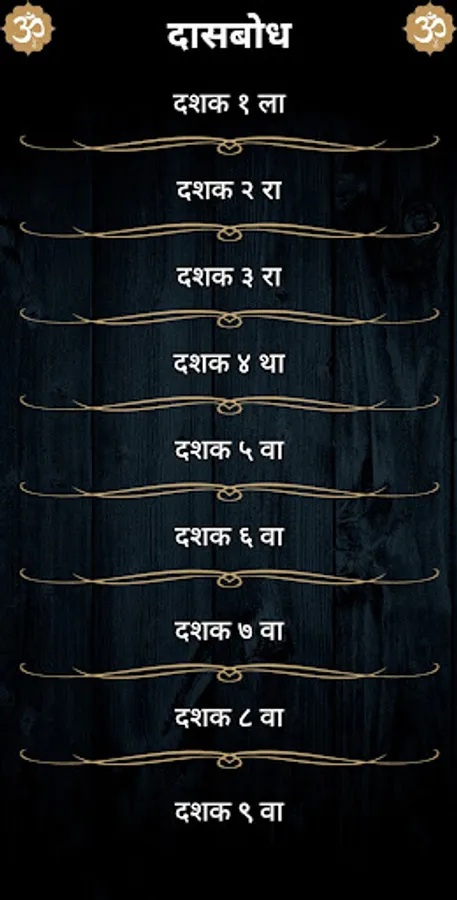 दासबोध
दशक १ ला
दशक २ रा
दशक ३ रा
दशक ४ था
दशक ५ वा
दशक ६ वा
दशक ७ वा
दशक ८ वा
दशक ९ वा